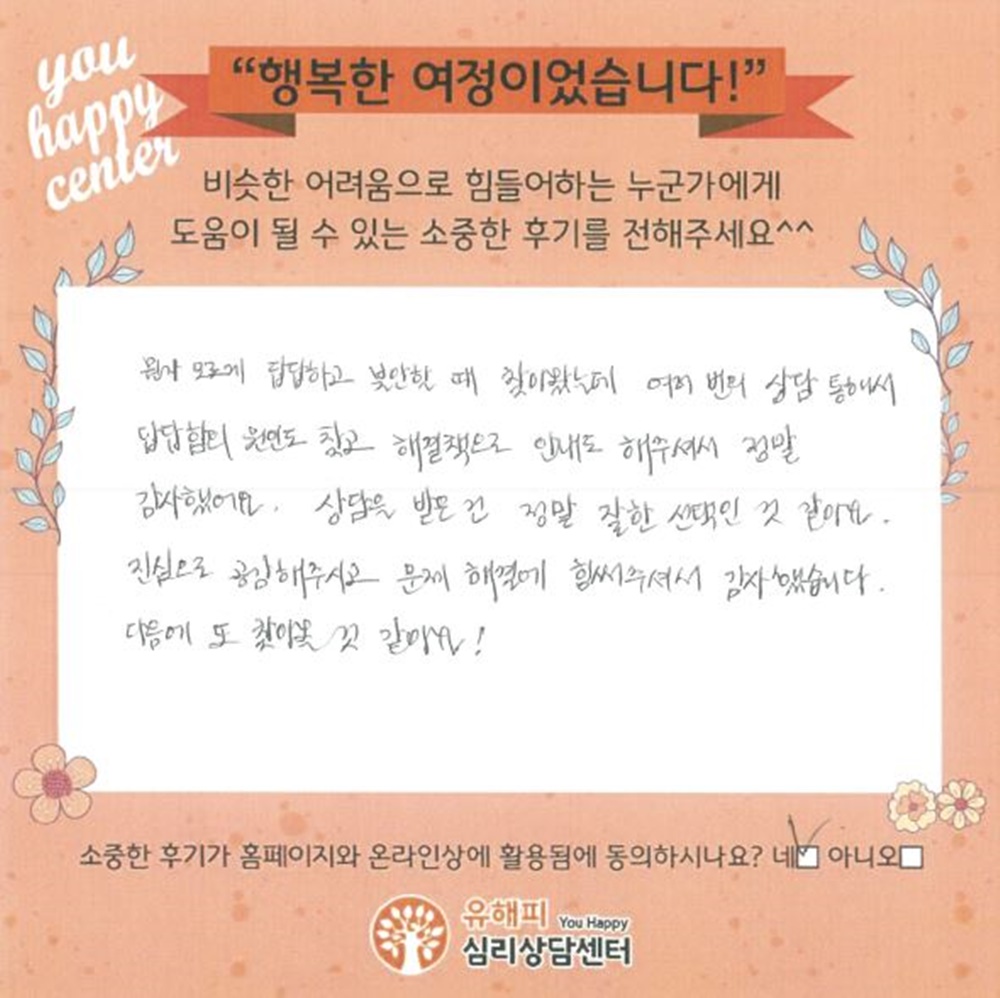 you
happy
center
“행복한 여정이었습니다!”
비슷한 어려움으로 힘들어하는 누군가에게
도움이 될 수 있는 소중한 후기를 전해주세요^^
뭔가 모르게 답답하고 불안할 때 찾아왔는데 여러 번의 상담 통해서
답답함의 원인도 찾고 해결책으로 안내도 해주셔서 정말
감사했어요. 상담을 받은 건 정말 잘한 선택인 것 같아요.
진심으로 공감해주시고 문제 해결에 힘써주셔서 감사했습니다.
다음에 또 찾아올 것 같아요!
소중한 후기가 홈페이지와 온라인상에 활용됨에 동의하시나요? 네☑ 아니오☐
유해피 You Happy
심리상담센터